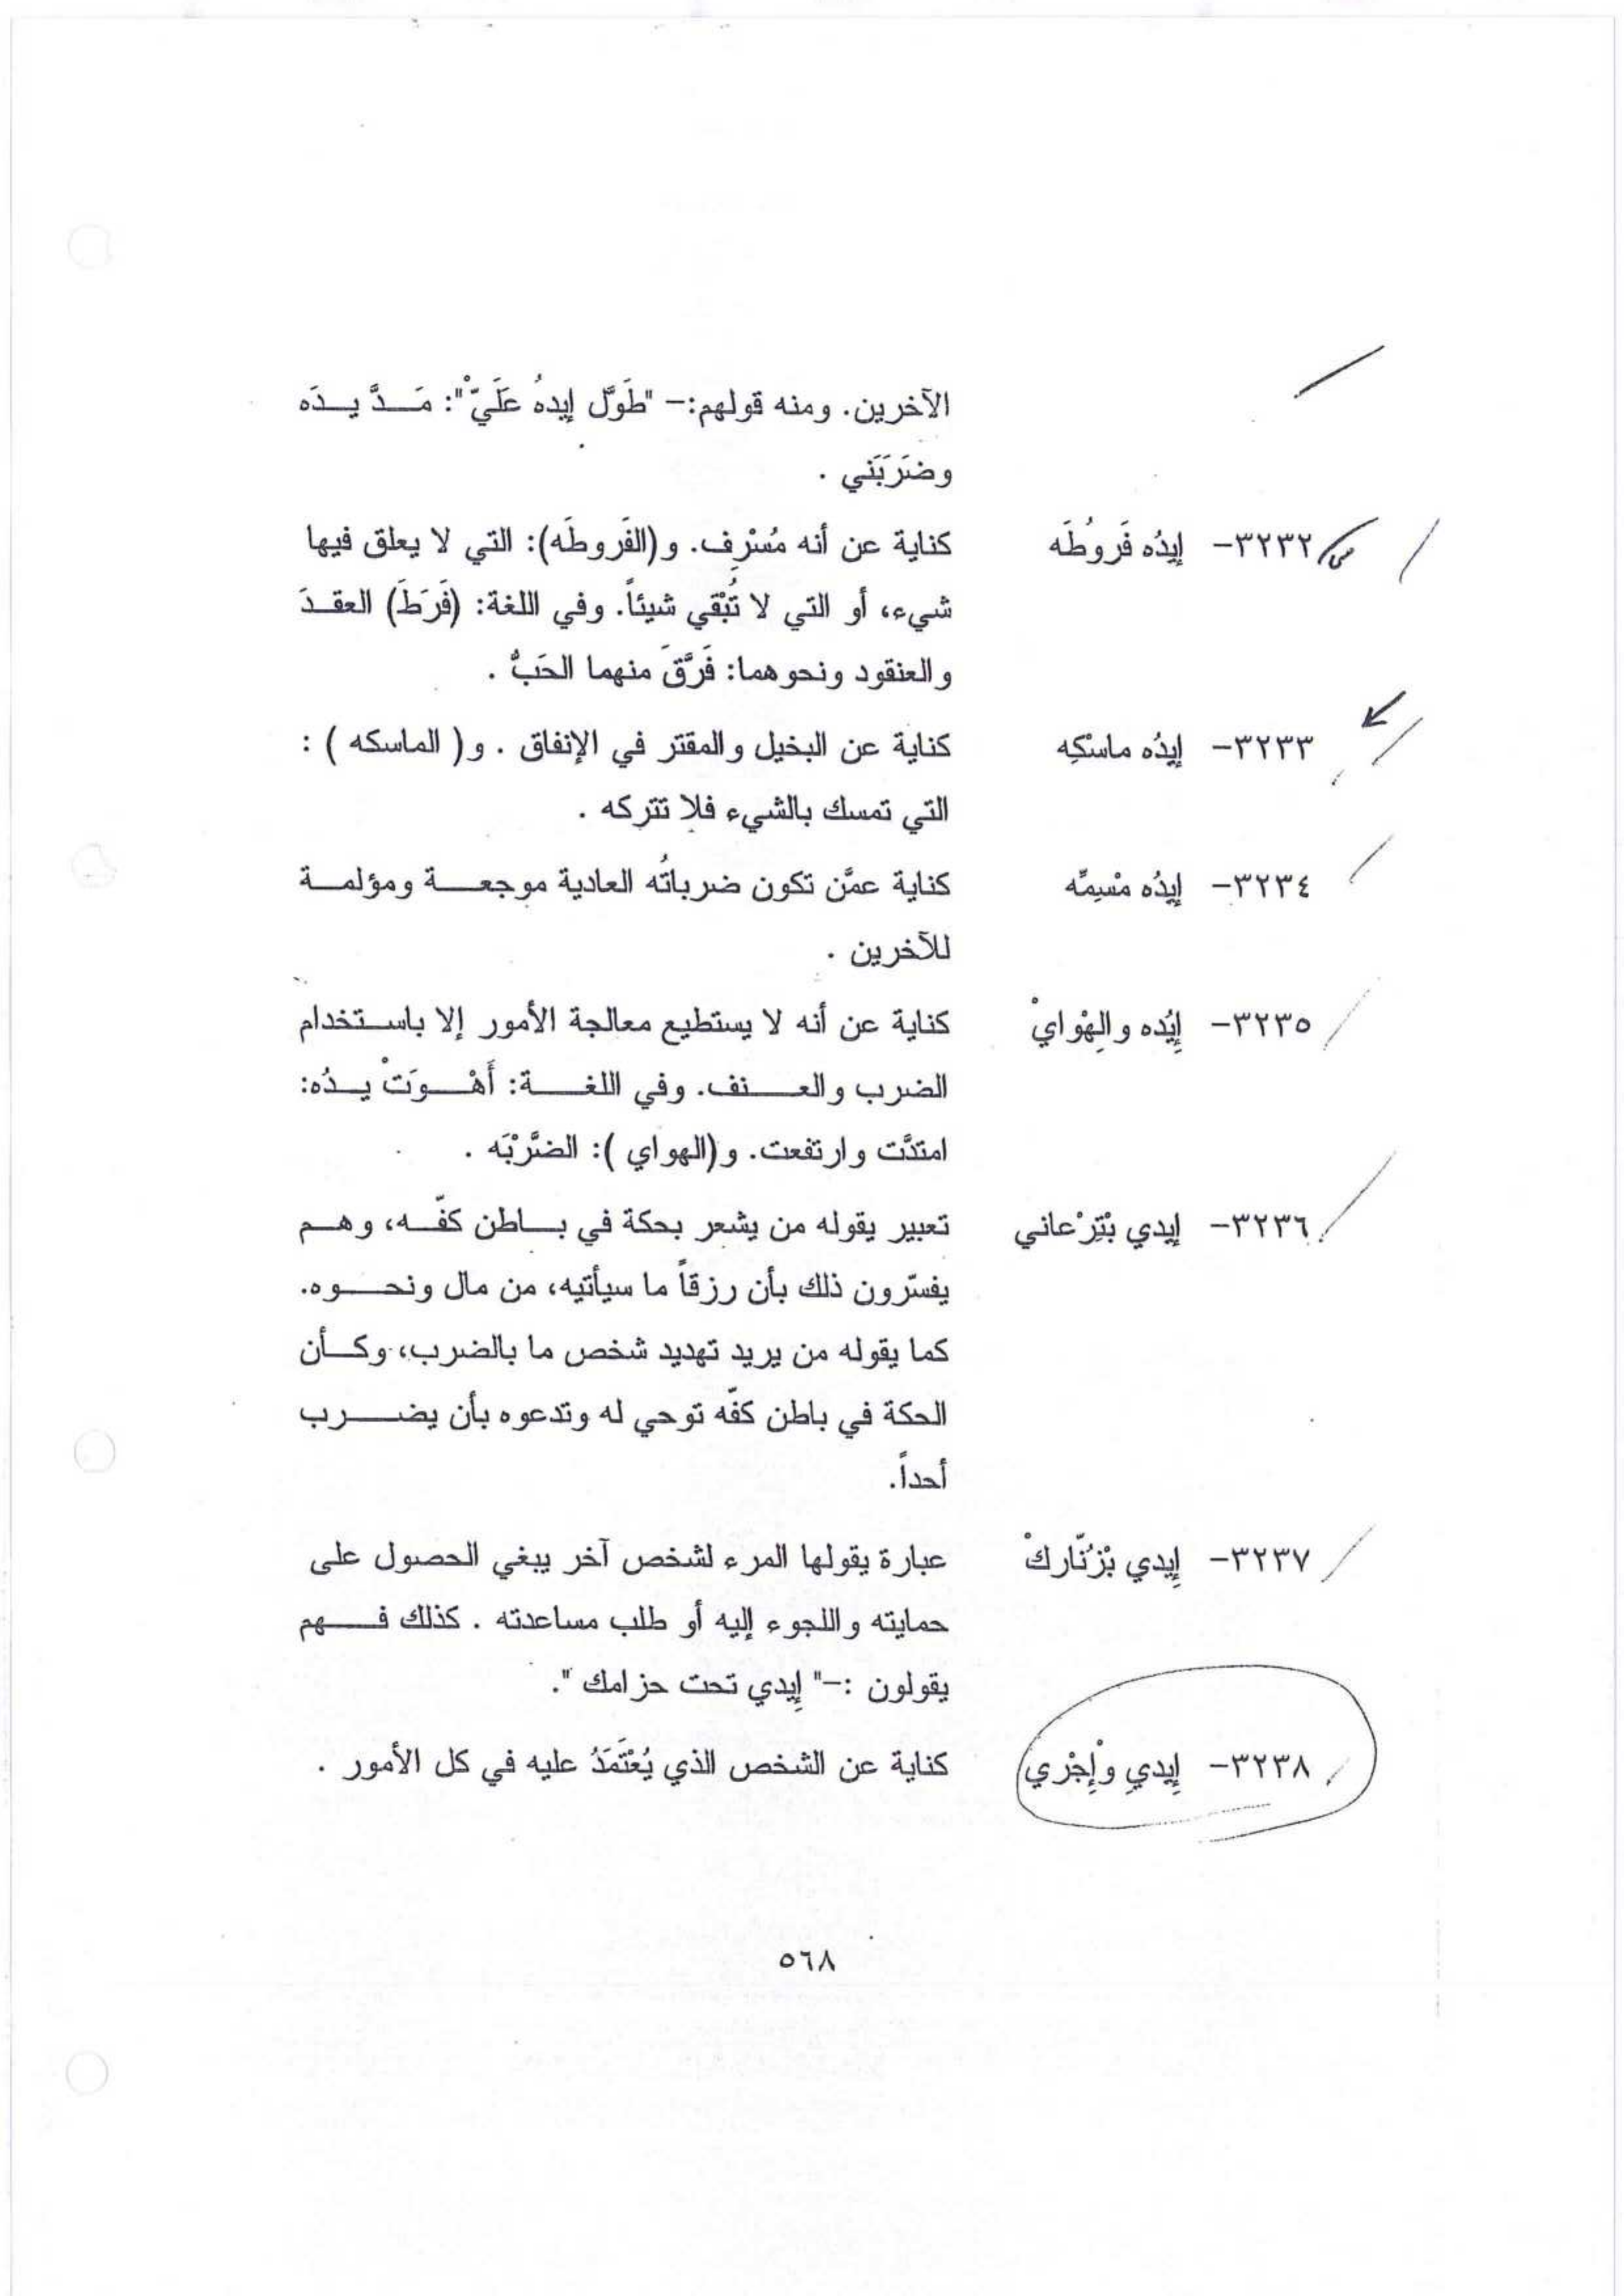 الآخرين. ومنه قولهم:- "طَوَّل إيدهُ عَلَيّْ": مَدَّ يدَه
وضَرَبَني .
٣٢٣٢- إيدُه فَروُطَه كناية عن أنه مُسْرِف. و(الفَروطَه): التي لا يعلق فيها
شيء، أو التي لا تُبْقي شيئاً. وفي اللغة: (فَرَطَ) العقدَ
والعنقود ونحوهما: فَرَّقَ منهما الحَبُّ .
٣٢٣٣- إيدُه ماسْكِه كناية عن البخيل والمقتر في الإنفاق . و( الماسكه ) :
التي تمسك بالشيء فلا تتركه .
٣٢٣٤- إيدُه مْسِمِّه كناية عمَّن تكون ضرباتُه العادية موجعة ومؤلمة
للآخرين .
٣٢٣٥- إِيْده والِهْوايْ كناية عن أنه لا يستطيع معالجة الأمور إلا باستخدام
الضرب والعنف. وفي اللغة: أَهْوَتْ يدُه:
امتدَّت وارتفعت. و(الهواي ): الضَّرْبَه .
٣٢٣٦- إيدي بْتِرْعاني تعبير يقوله من يشعر بحكة في باطن كفّه، وهم
يفسّرون ذلك بأن رزقاً ما سيأتيه، من مال ونحوه.
كما يقوله من يريد تهديد شخص ما بالضرب، وكأن
الحكة في باطن كفّه توحي له وتدعوه بأن يضرب
أحداً.
٣٢٣٧- إِيدي بْزنّاركْ عبارة يقولها المرء لشخص آخر يبغي الحصول على
حمايته واللجوء إليه أو طلب مساعدته . كذلك فهم
يقولون :-" إِيدي تحت حزامك ".
٣٢٣٨- إِيديِ وْإِجْري كناية عن الشخص الذي يُعْتَمَدُ عليه في كل الأمور .
٥٦٨